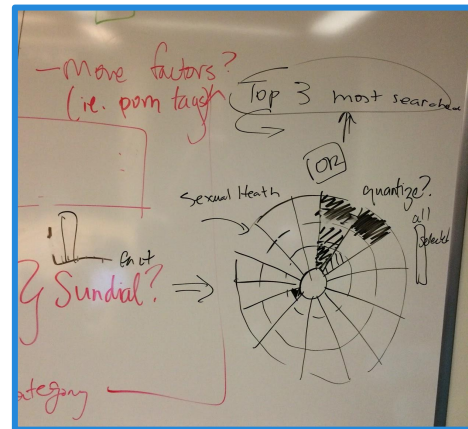 - More factors?
(ie. porn tags)
Top 3 most searched
OR
Sexual Heath
quantize?
all
selected
Sundial?
ategory